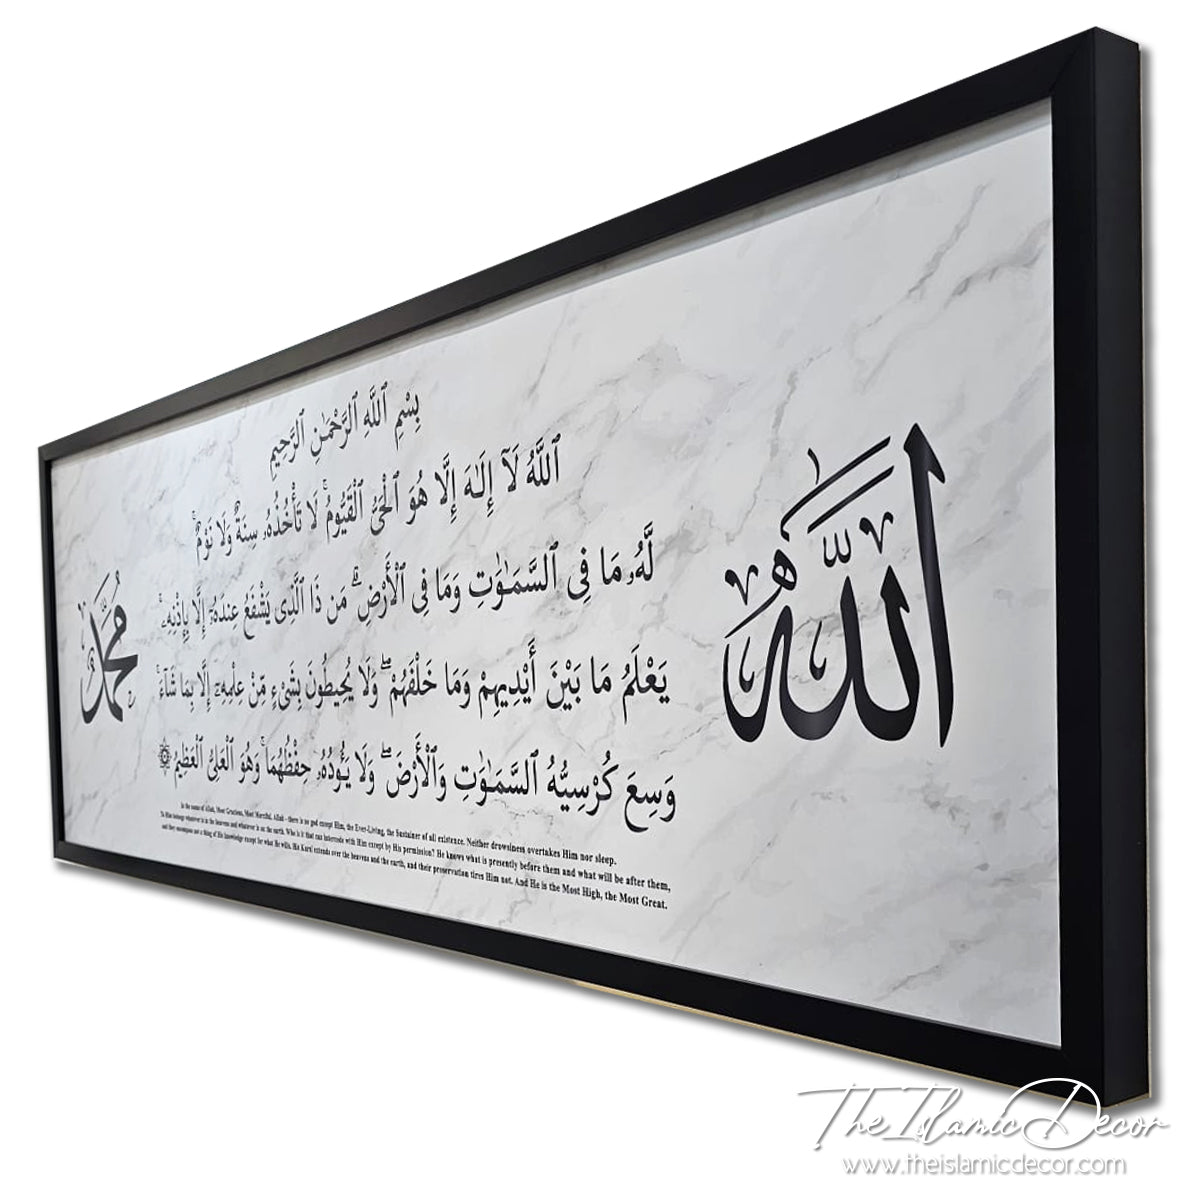 بِسْمِ ٱللَّهِ ٱلرَّحْمَـٰنِ ٱلرَّحِيمِ
ٱللَّهُ لَآ إِلَـٰهَ إِلَّا هُوَ ٱلْحَىُّ ٱلْقَيُّومُ ۚ لَا تَأْخُذُهُۥ سِنَةٌ وَلَا نَوْمٌ ۚ
لَّهُۥ مَا فِى ٱلسَّمَـٰوَٰتِ وَمَا فِى ٱلْأَرْضِ ۗ مَن ذَا ٱلَّذِى يَشْفَعُ عِندَهُۥٓ إِلَّا بِإِذْنِهِۦ ۚ
يَعْلَمُ مَا بَيْنَ أَيْدِيهِمْ وَمَا خَلْفَهُمْ ۖ وَلَا يُحِيطُونَ بِشَىْءٍ مِّنْ عِلْمِهِۦٓ إِلَّا بِمَا شَآءَ ۚ
وَسِعَ كُرْسِيُّهُ ٱلسَّمَـٰوَٰتِ وَٱلْأَرْضَ ۖ وَلَا يَـُٔودُهُۥ حِفْظُهُمَا ۚ وَهُوَ ٱلْعَلِىُّ ٱلْعَظِيمُ
الله
محمد
In the name of Allah, Most Gracious, Most Merciful. Allah - there is no god except Him, the Ever-Living, the Sustainer of all existence. Neither drowsiness overtakes Him nor sleep.
To Him belongs whatever is in the heavens and whatever is on the earth. Who is it that can intercede with Him except by His permission? He knows what is presently before them and what will be after them,
and they encompass not a thing of His knowledge except for what He wills. His Kursi extends over the heavens and the earth, and their preservation tires Him not. And He is the Most High, the Most Great.
The Islamic Decor
www.theislamicdecor.com